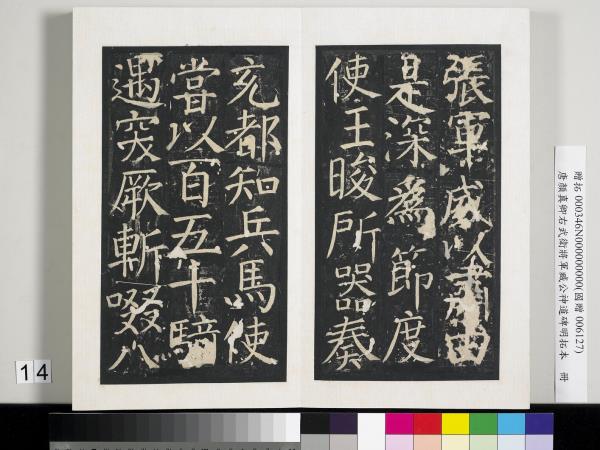 張軍威以肅由
是深為節度
使王晙所器奏
充都知兵馬使
嘗以百五十騎
遇突厥斬啜八
贈拓 000346N000000000(國贈 006127)
唐顏真卿右武衛將軍臧公神道碑明拓本 冊
14